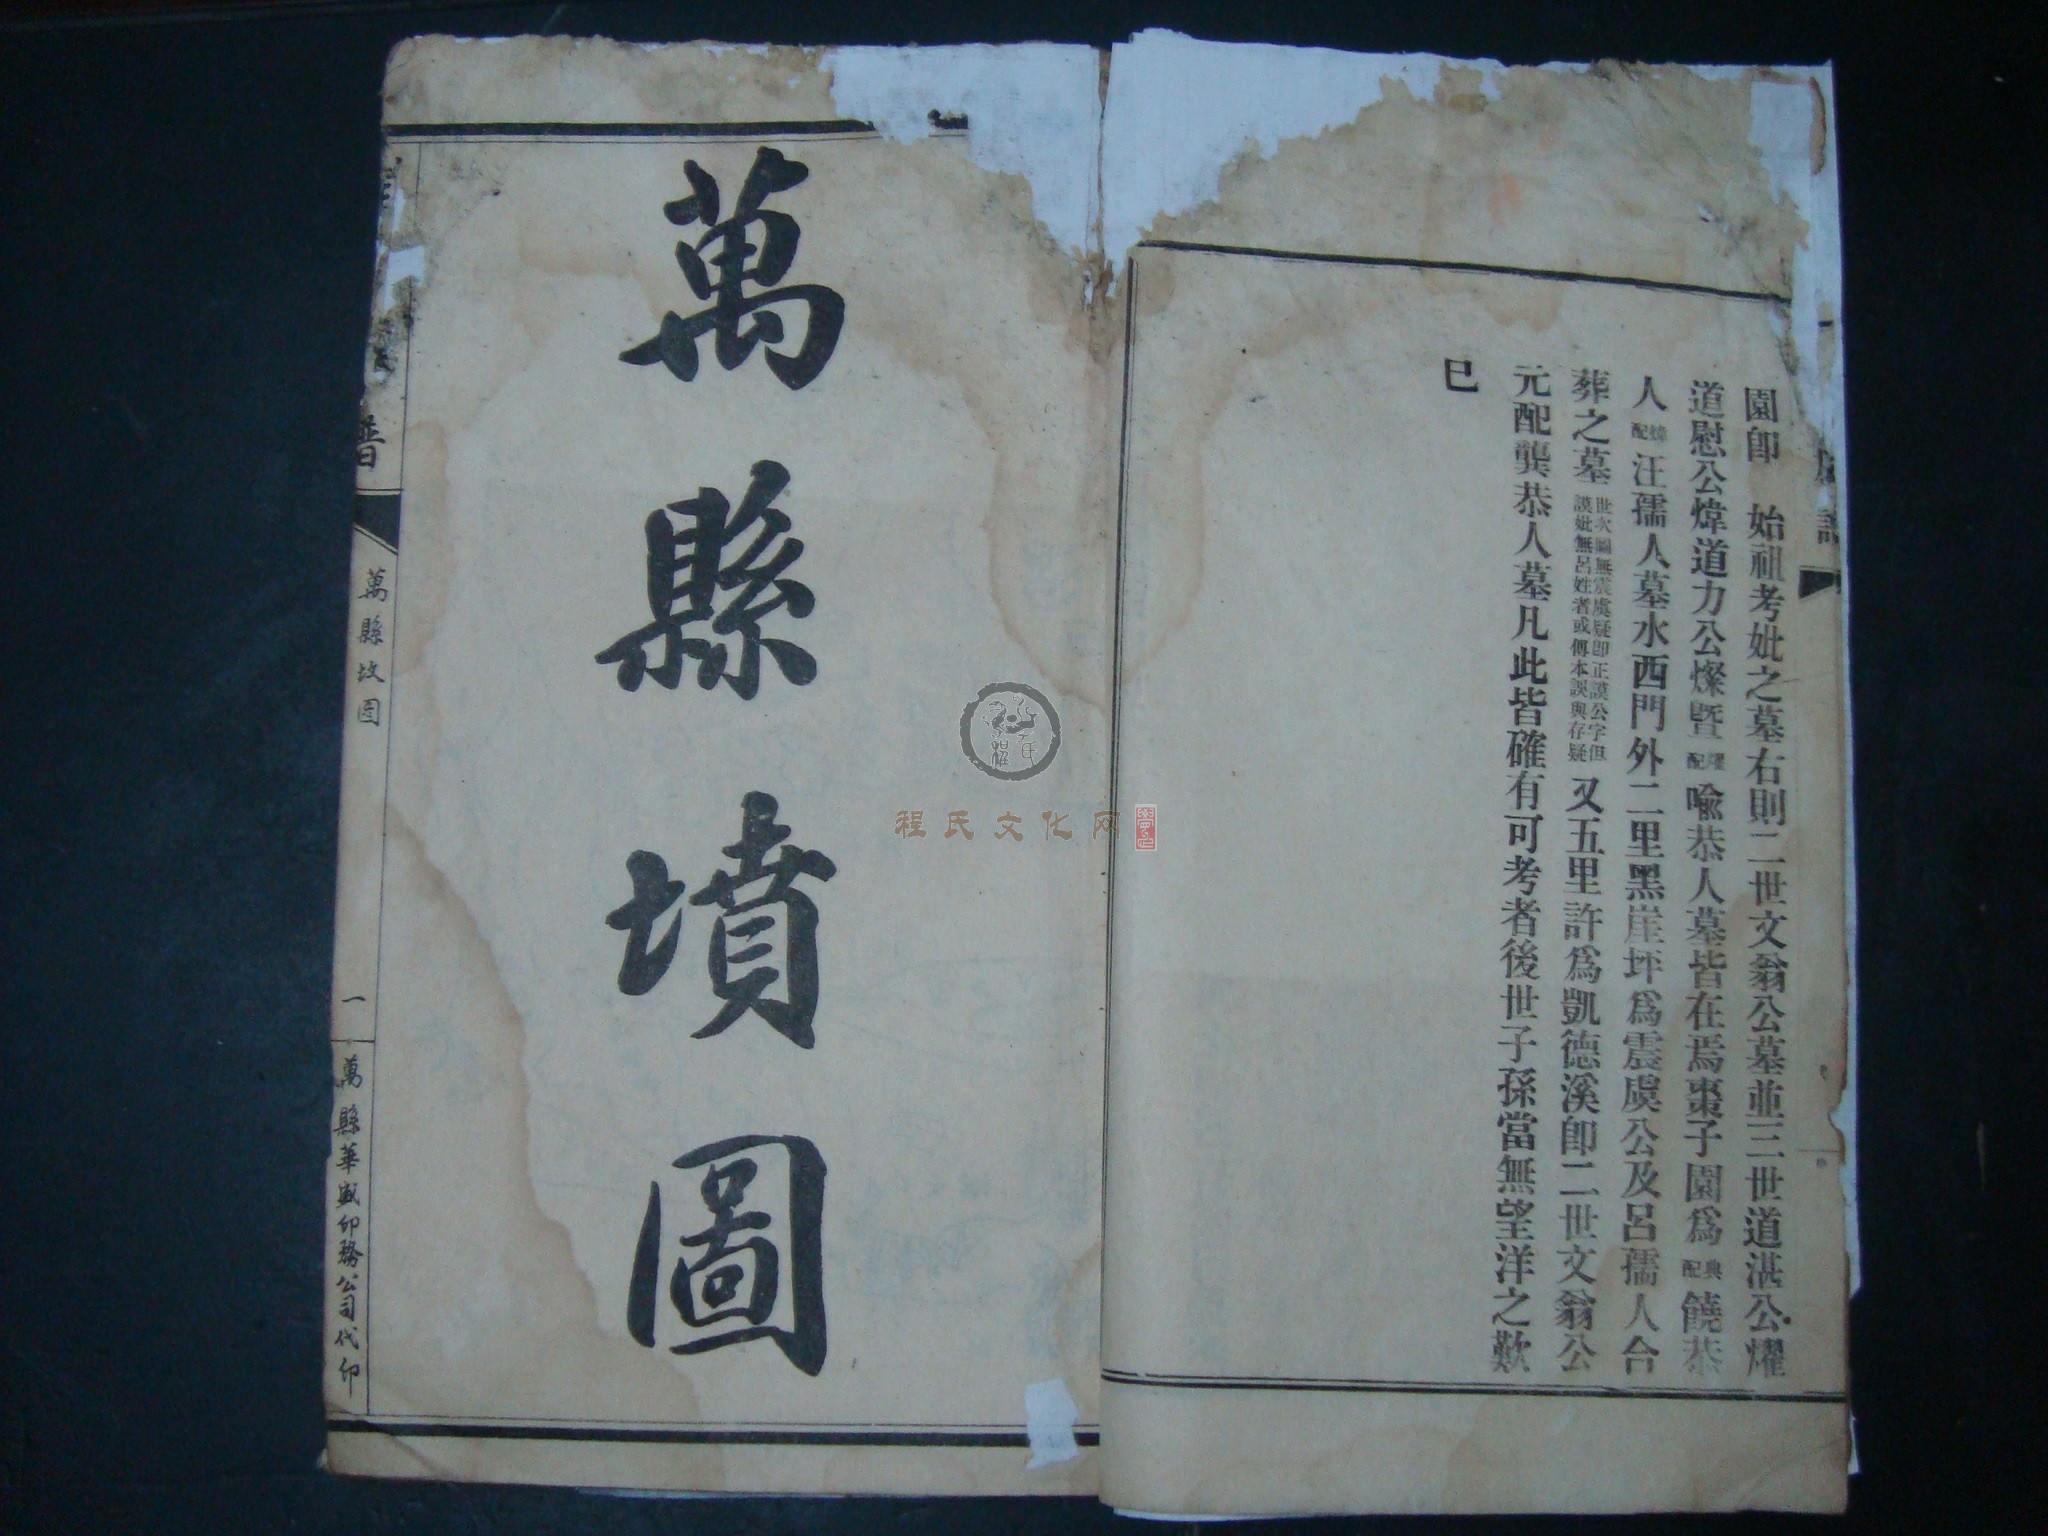 園卽　始祖考妣之墓右則二世文翁公墓並三世道湛公燿
道慰公煒道力公燦曁配燿喩恭人墓皆在焉棗子園爲配典饒恭
人配煒汪孺人墓水西門外二里黑崖坪爲震虞公及呂孺人合
葬之墓世次圖無震虞疑卽正謨公字但謨妣無呂姓者或傳本誤與存疑又五里許爲凱德溪卽二世文翁公
元配龔恭人墓凡此皆確有可考者後世子孫當無望洋之歎
已
萬縣墳圖
譜
萬縣坟图
一
萬縣華盛印務公司代印
程氏
程氏文化网